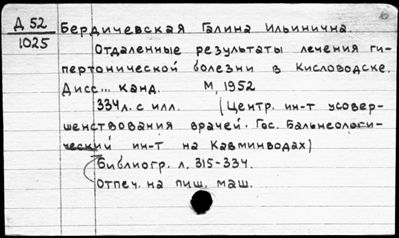 Д 52
1025
Бердичевская Галина Ильинична.
Отдаленные результаты лечения ги-
пертонической болезни в Кисловодске.
Дисс... канд. М, 1952
334л. с илл. (Центр. ин-т усовер-
шенствования врачей. Гос. Бальнеологи-
ческий ин-т на Кавминводах)
Библиогр. л. 315-334.
Отпеч. на пиш. маш.